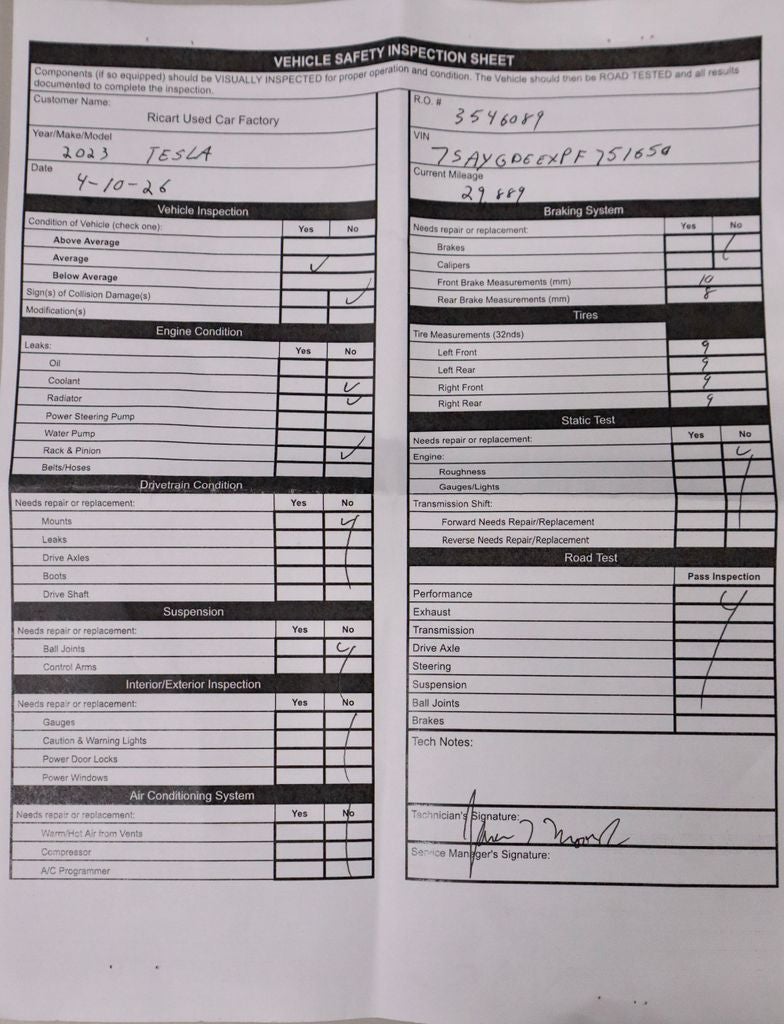 VEHICLE SAFETY INSPECTION SHEET
Components (if so equipped) should be VISUALLY INSPECTED for proper operation and condition. The Vehicle should then be ROAD TESTED and all results
documented to complete the inspection.
Customer Name:
Ricart Used Car Factory
Year/Make/Model
2023 TESLA
Date
4-10-26
Vehicle Inspection
Condition of Vehicle (check one): Yes No
Above Average
Average ✓
Below Average
Sign(s) of Collision Damage(s) ✓
Modification(s)
Engine Condition
Leaks: Yes No
Oil
Coolant ✓
Radiator ✓
Power Steering Pump
Water Pump
Rack & Pinion ✓
Belts/Hoses
Drivetrain Condition
Needs repair or replacement: Yes No
Mounts ✓
Leaks
Drive Axles
Boots
Drive Shaft
Suspension
Needs repair or replacement: Yes No
Ball Joints ✓
Control Arms
Interior/Exterior Inspection
Needs repair or replacement: Yes No
Gauges
Caution & Warning Lights
Power Door Locks
Power Windows
Air Conditioning System
Needs repair or replacement: Yes No
Warm/Hot Air from Vents
Compressor
A/C Programmer
R.O. #
3546089
VIN
7SAYGDEEXPF751650
Current Mileage
29889
Braking System
Needs repair or replacement: Yes No
Brakes
Calipers
Front Brake Measurements (mm) 10
Rear Brake Measurements (mm) 8
Tires
Tire Measurements (32nds)
Left Front 9
Left Rear 9
Right Front 9
Right Rear 9
Static Test
Needs repair or replacement: Yes No
Engine: ✓
Roughness
Gauges/Lights
Transmission Shift:
Forward Needs Repair/Replacement
Reverse Needs Repair/Replacement
Road Test
Pass Inspection
Performance ✓
Exhaust
Transmission
Drive Axle
Steering
Suspension
Ball Joints
Brakes
Tech Notes:
Technician's Signature:
Service Manager's Signature: